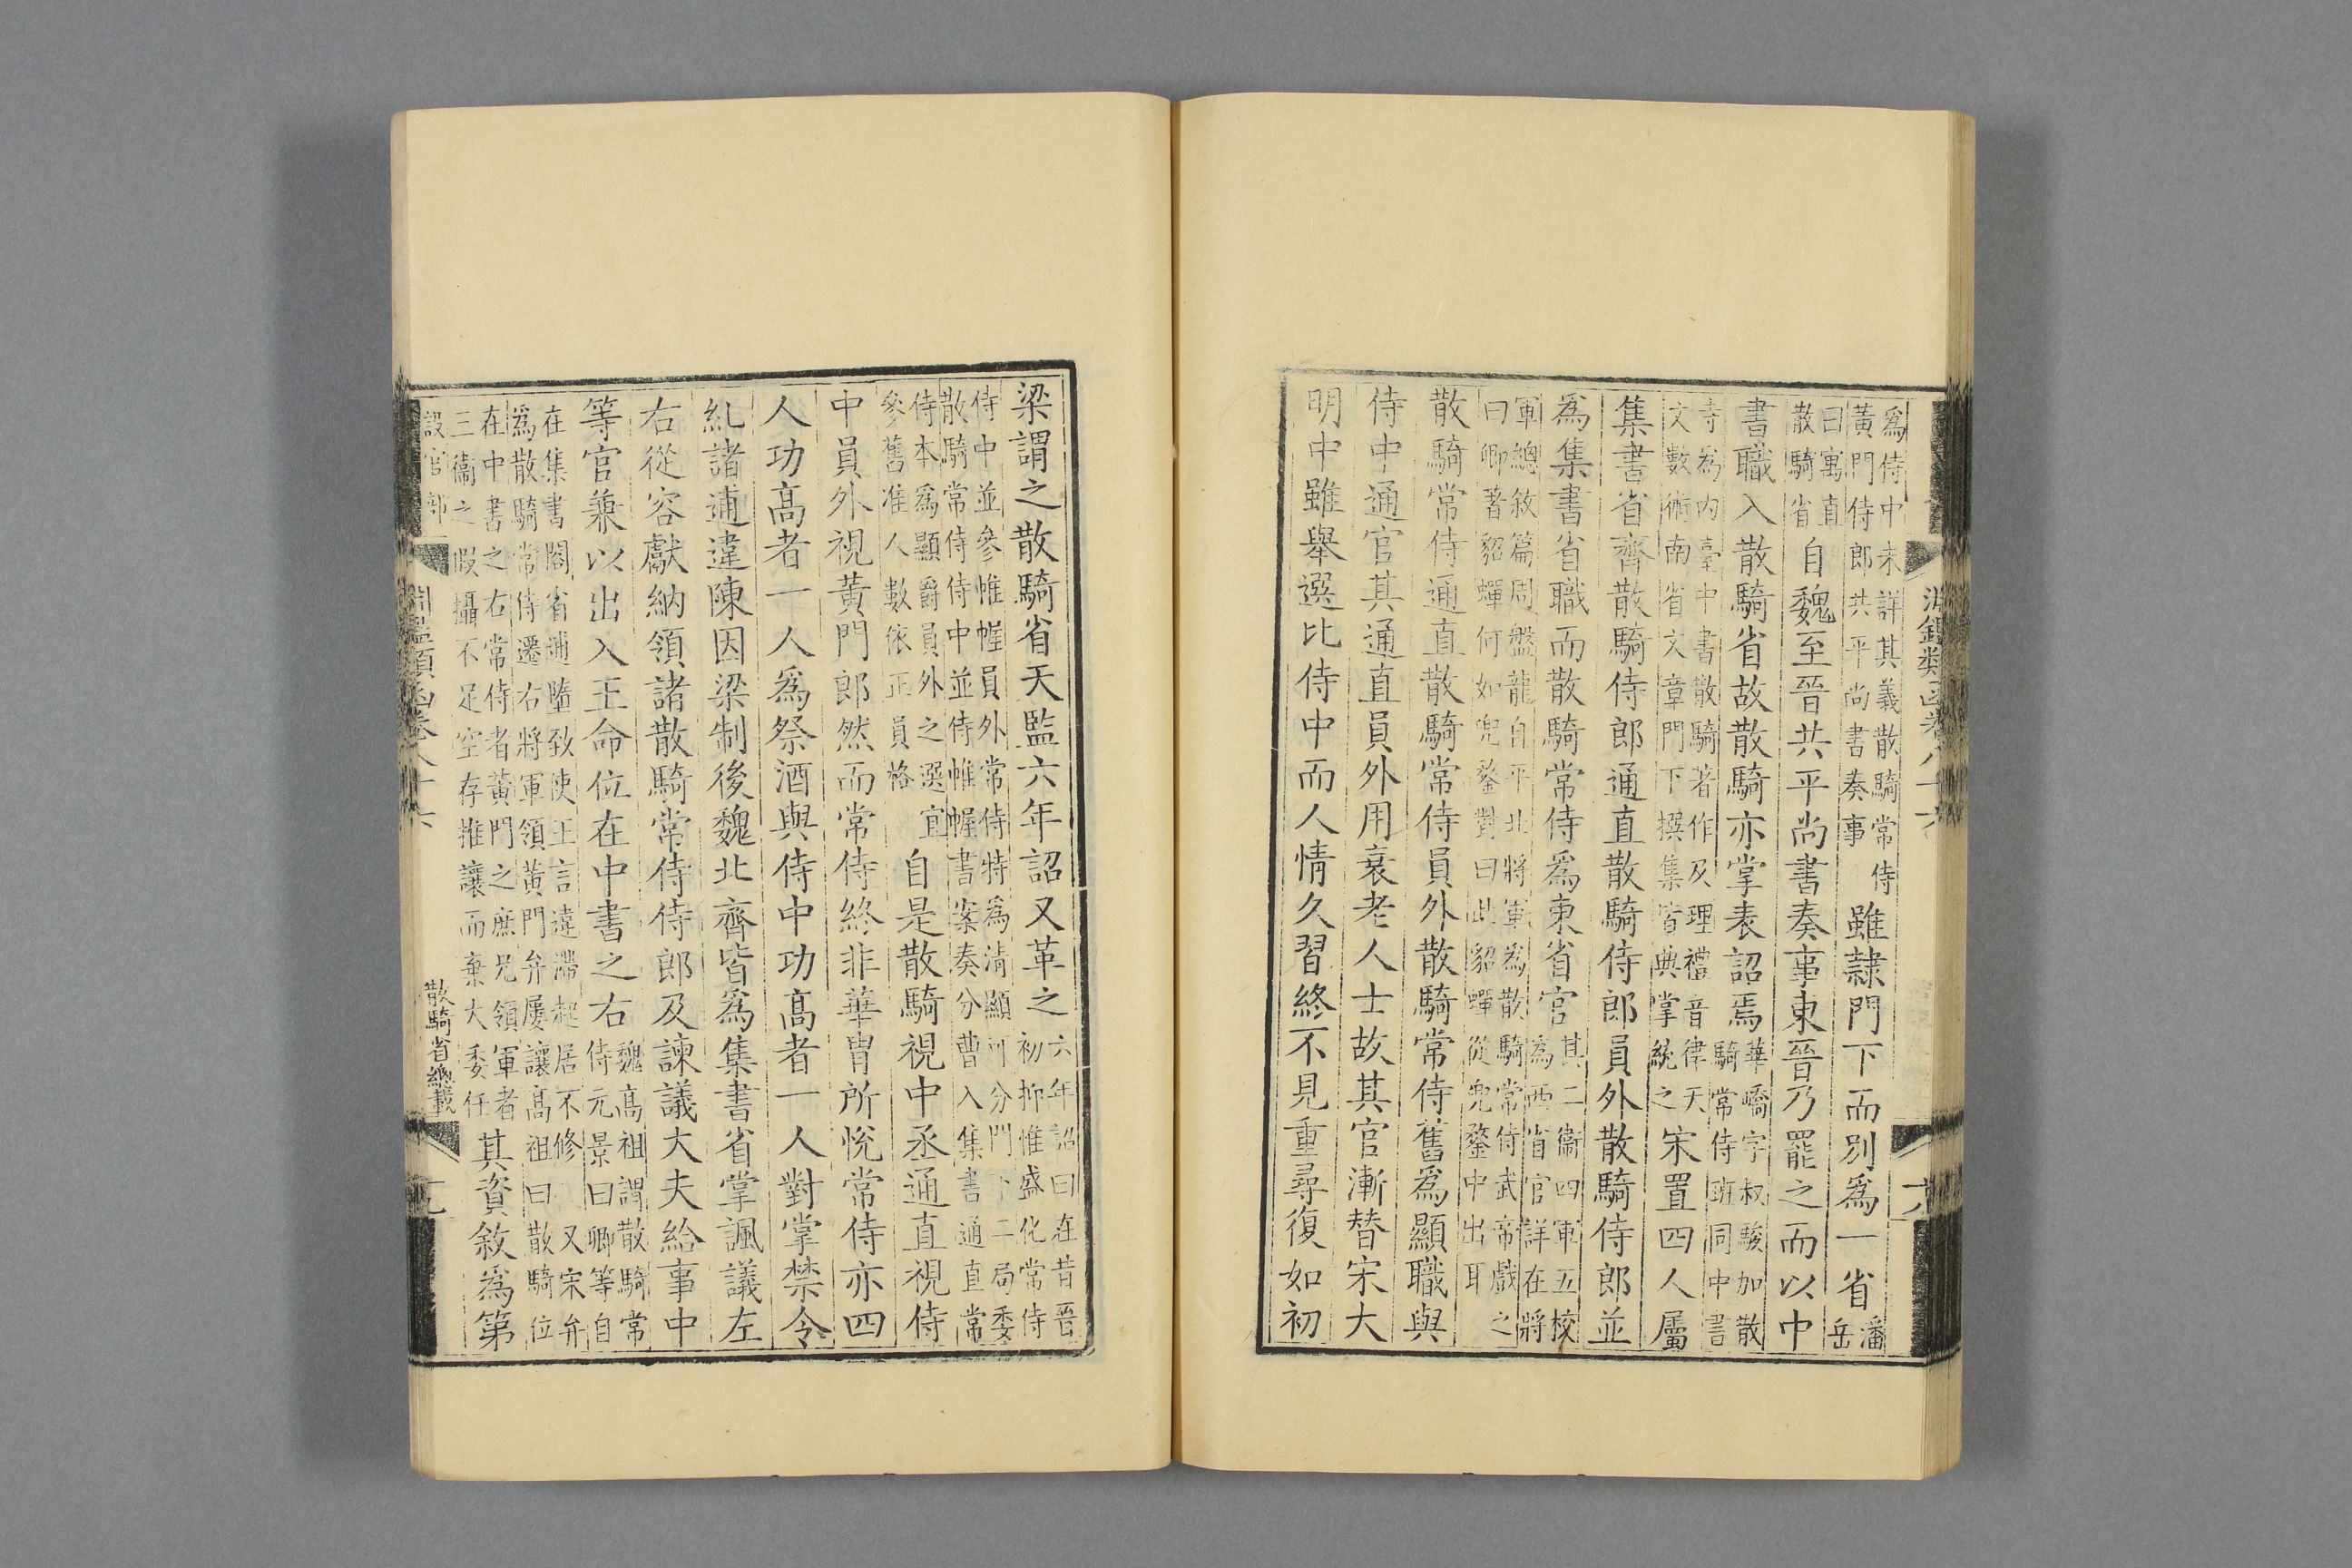 淵鑑類函卷八十六
十八
爲侍中未詳其義散騎常侍
黃門侍郎共平尚書奏事
雖隷門下而別爲一省
潘
岳
曰寓直
散騎省
自魏至晉共平尚書奏事東晉乃罷之而以中
書職入散騎省故散騎亦掌表詔焉
華嶠字叔駿加散
騎常侍班同中書
寺爲內臺中書散騎著作及理禮音律天
文數術南省文章門下撰集皆典掌統之
宋置四人屬
集書省齊散騎侍郎通直散騎侍郎員外散騎侍郎並
爲集書省職而散騎常侍爲東省官
其二衞四軍五校
爲西省官詳在將
軍總敘篇周盤龍自平北將軍爲散騎常侍武帝戲之
曰卿著貂蟬何如兜鍪對曰此貂蟬從兜鍪中出耳
散騎常侍通直散騎常侍員外散騎常侍舊爲顯職與
侍中通官其通直員外用衰老人士故其官漸替宋大
明中雖舉選比侍中而人情久習終不見重尋復如初
梁謂之散騎省天監六年詔又革之
六年詔曰在昔晉
初抑惟盛化常侍
侍中並參帷幄員外常侍特爲淸顯
分門下二局委
散騎常侍侍中並侍帷幄書案奏分曹入集書通直常
侍本爲顯爵員外之選宜
參舊准人數依正員格
自是散騎視中丞通直視侍
中員外視黃門郎然而常侍終非華胄所悅常侍亦四
人功高者一人爲祭酒與侍中功高者一人對掌禁令
糺諸逋違陳因梁制後魏北齊皆爲集書省掌諷議左
右從容獻納領諸散騎常侍侍郎及諫議大夫給事中
等官兼以出入王命位在中書之右
魏高祖謂散騎常
侍元景曰卿等自
在集書閤省逋墮致使王言遺滯起居不修又宋弁
爲散騎常侍遷右將軍領黃門弁屢讓高祖曰散騎位
在中書之右常侍者黃門之庶兄領軍者
三衞之假攝不足空存推讓而棄大委任
其資敘爲第
設官部
淵鑑類函卷八十六
散騎省總載
十九